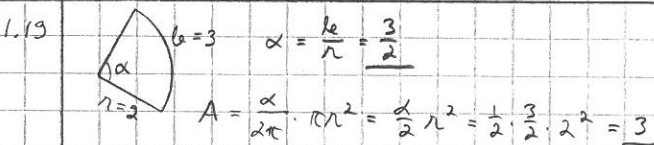 1.19
b = 3
α
r = 2
α = b/r = 3/2
A = α/2π · πr² = α/2 r² = 1/2 · 3/2 · 2² = 3